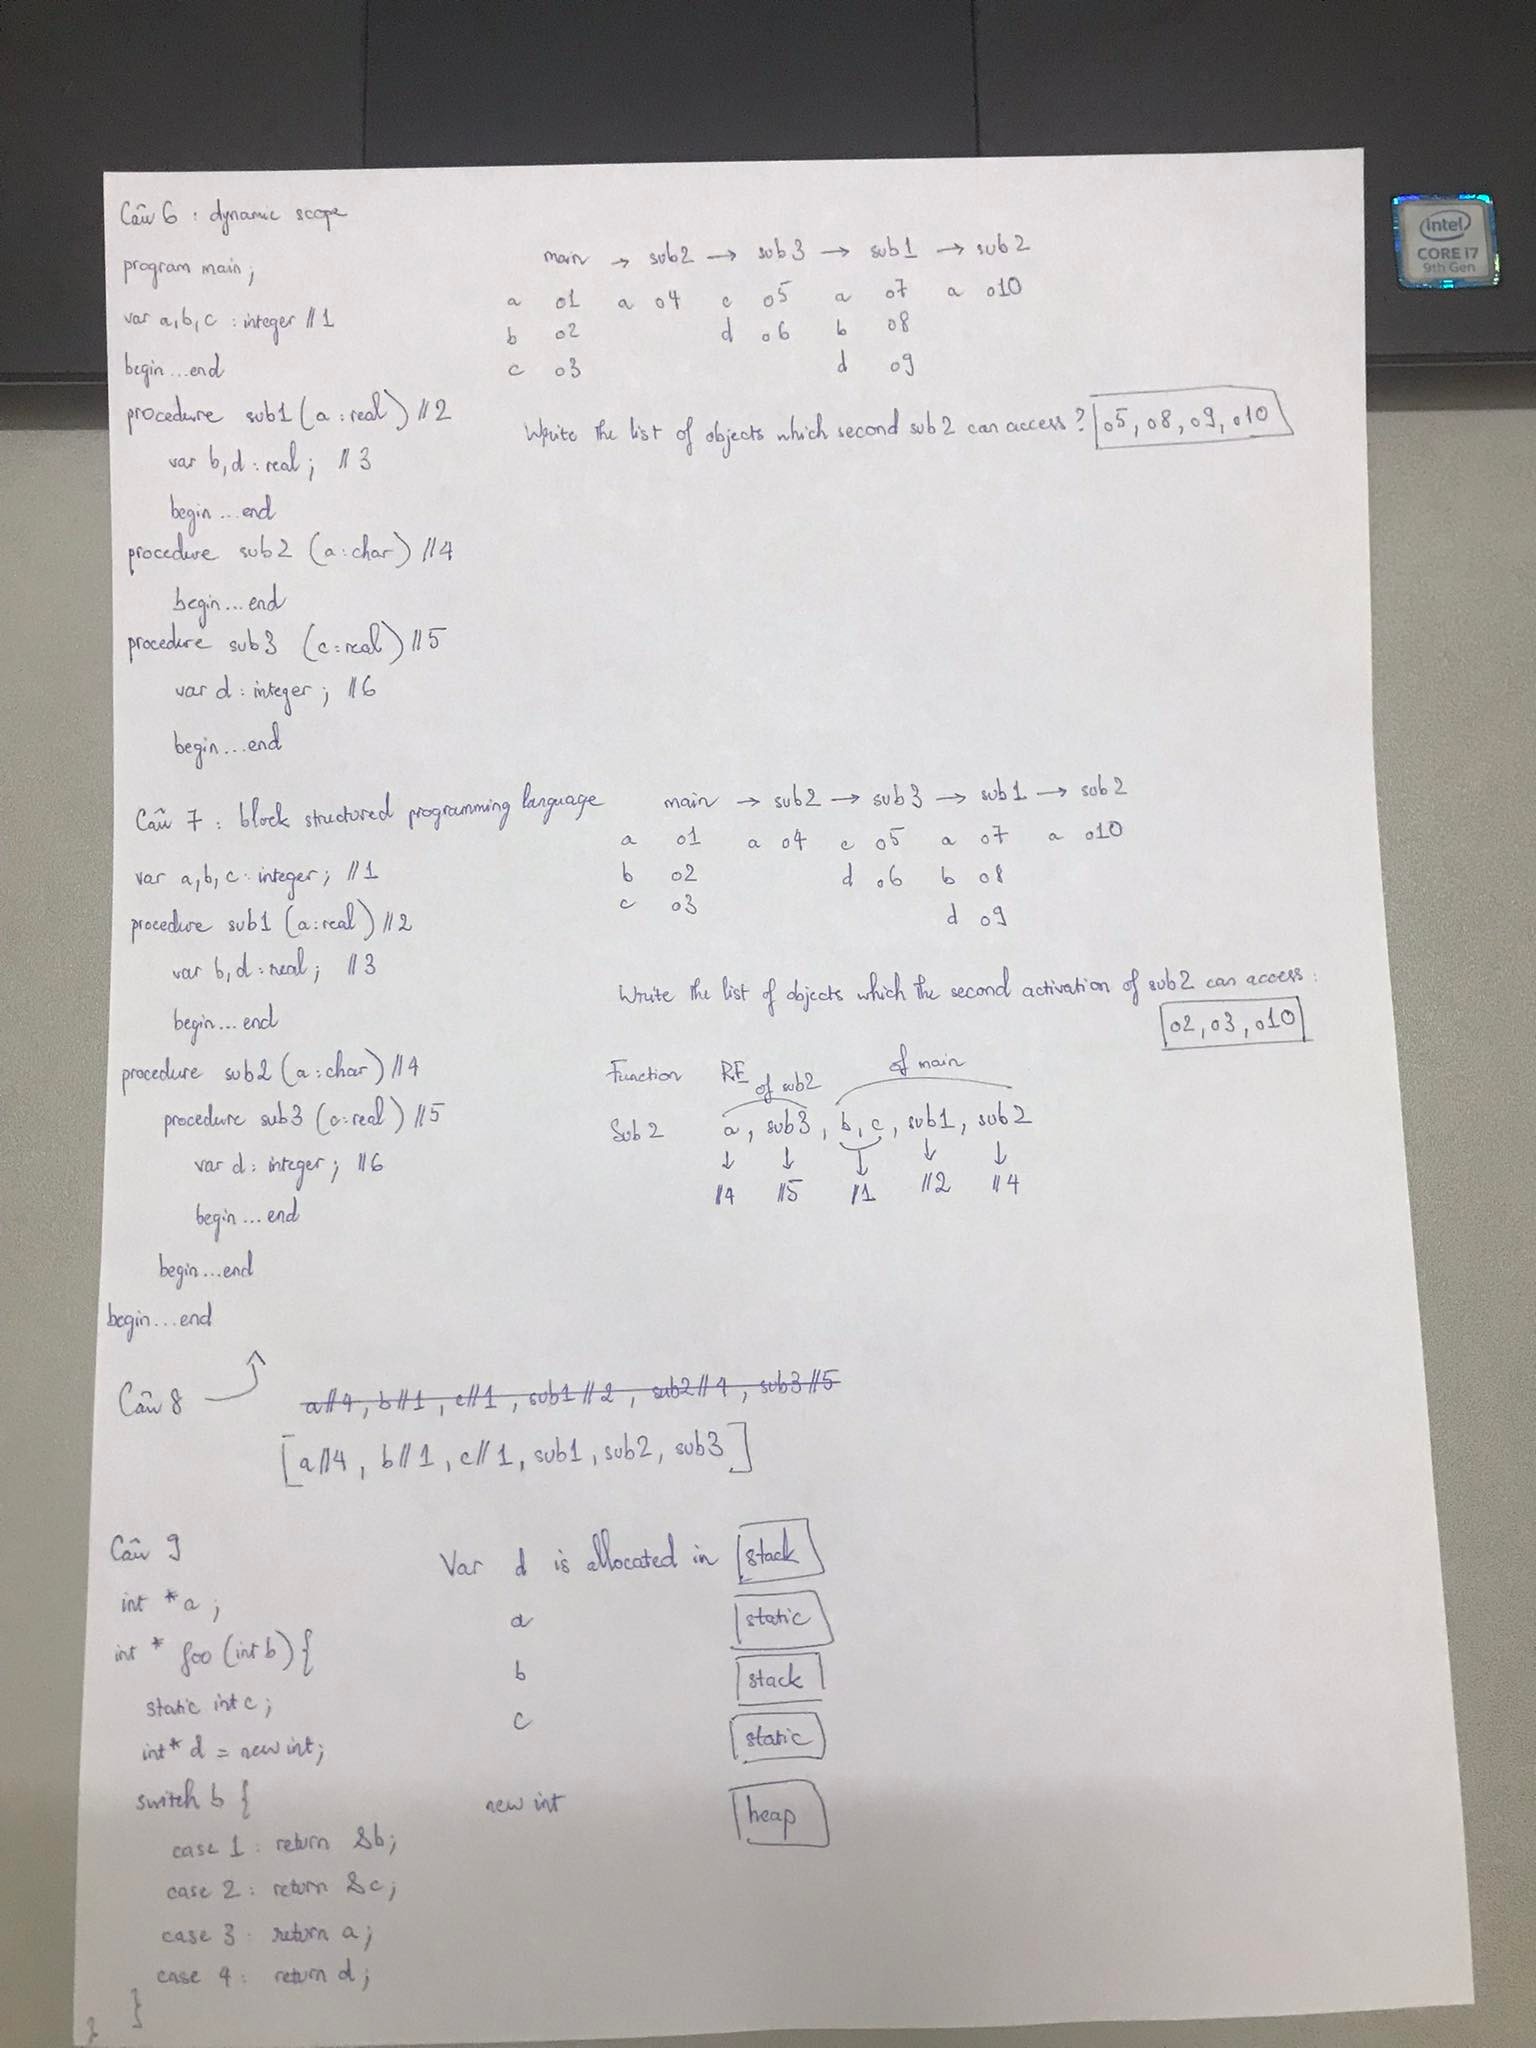 Câu 6 : dynamic scope
program main;
var a, b, c : integer //1
begin...end
procedure sub1 (a : real) //2
var b, d : real; //3
begin...end
procedure sub2 (a : char) //4
begin...end
procedure sub3 (c : real) //5
var d : integer; //6
begin...end
main → sub2 → sub3 → sub1 → sub2
a o1 a o4 c o5 a o7 a o10
b o2 d o6 b o8
c o3 d o9
Write the list of objects which second sub2 can access? o5, o8, o9, o10
intel
CORE i7
9th Gen
Câu 7 : block structured programming language
var a, b, c : integer; //1
procedure sub1 (a : real) //2
var b, d : real; //3
begin...end
procedure sub2 (a : char) //4
procedure sub3 (c : real) //5
var d : integer; //6
begin...end
begin...end
begin...end
main → sub2 → sub3 → sub1 → sub2
a o1 a o4 c o5 a o7 a o10
b o2 d o6 b o8
c o3 d o9
Write the list of objects which the second activation of sub2 can access :
o2, o3, o10
Function RE of sub2 of main
Sub2 a, sub3, b, c, sub1, sub2
↓ ↓ ↓ ↓ ↓
//4 //5 //1 //2 //4
Câu 8
a//4, b//1, c//1, sub1//2, sub2//4, sub3//5
[a//4, b//1, c//1, sub1, sub2, sub3]
Câu 9
int *a;
int * foo (int b) {
static int c;
int* d = new int;
switch b {
case 1 : return &b;
case 2 : return &c;
case 3 : return a;
case 4 : return d;
}
}
Var d is allocated in stack
a static
b stack
c static
new int heap